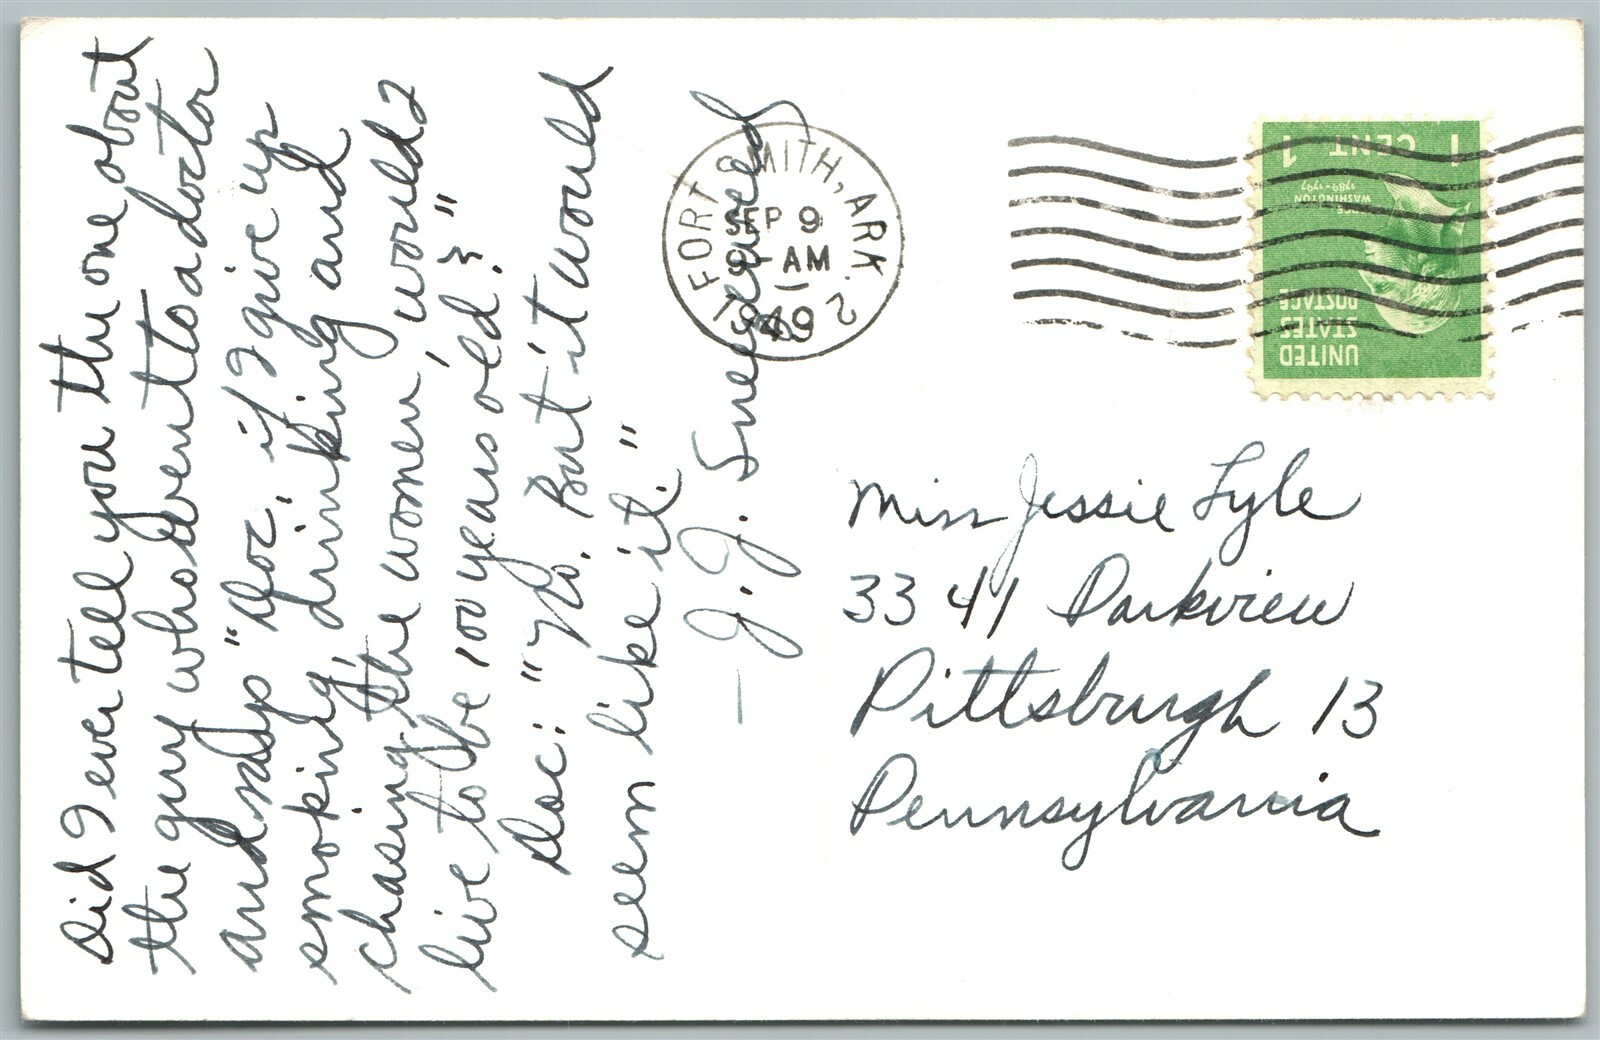 Did I ever tell you the one about
the guy who went to a doctor
and says "Doc, if I give up
smoking, drinking and
chasing the women, would I
live to be 100 years old?"
Doc: "No. But it would
seem like it."
— J. J.
FORT SMITH, ARK. 2
SEP 9
9 - AM
1949
1 CENT 1
WASHINGTON
1789-1797
UNITED
STATES
POSTAGE
Miss Jessie Lyle
3341 Parkview
Pittsburgh 13
Pennsylvania